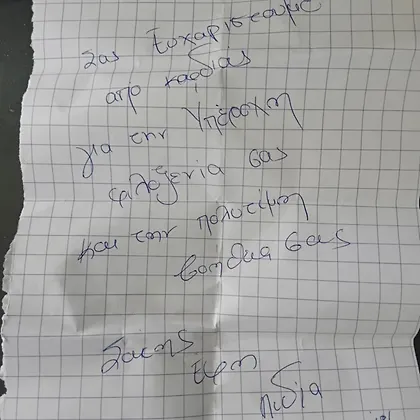 Σας Ευχαριστουμε
απο καρδιάς
για την Υπέροχη
φιλοξενια σας
και την πολυτιμη
βοηθεια σας
Σακης
Έφη
Λυδία